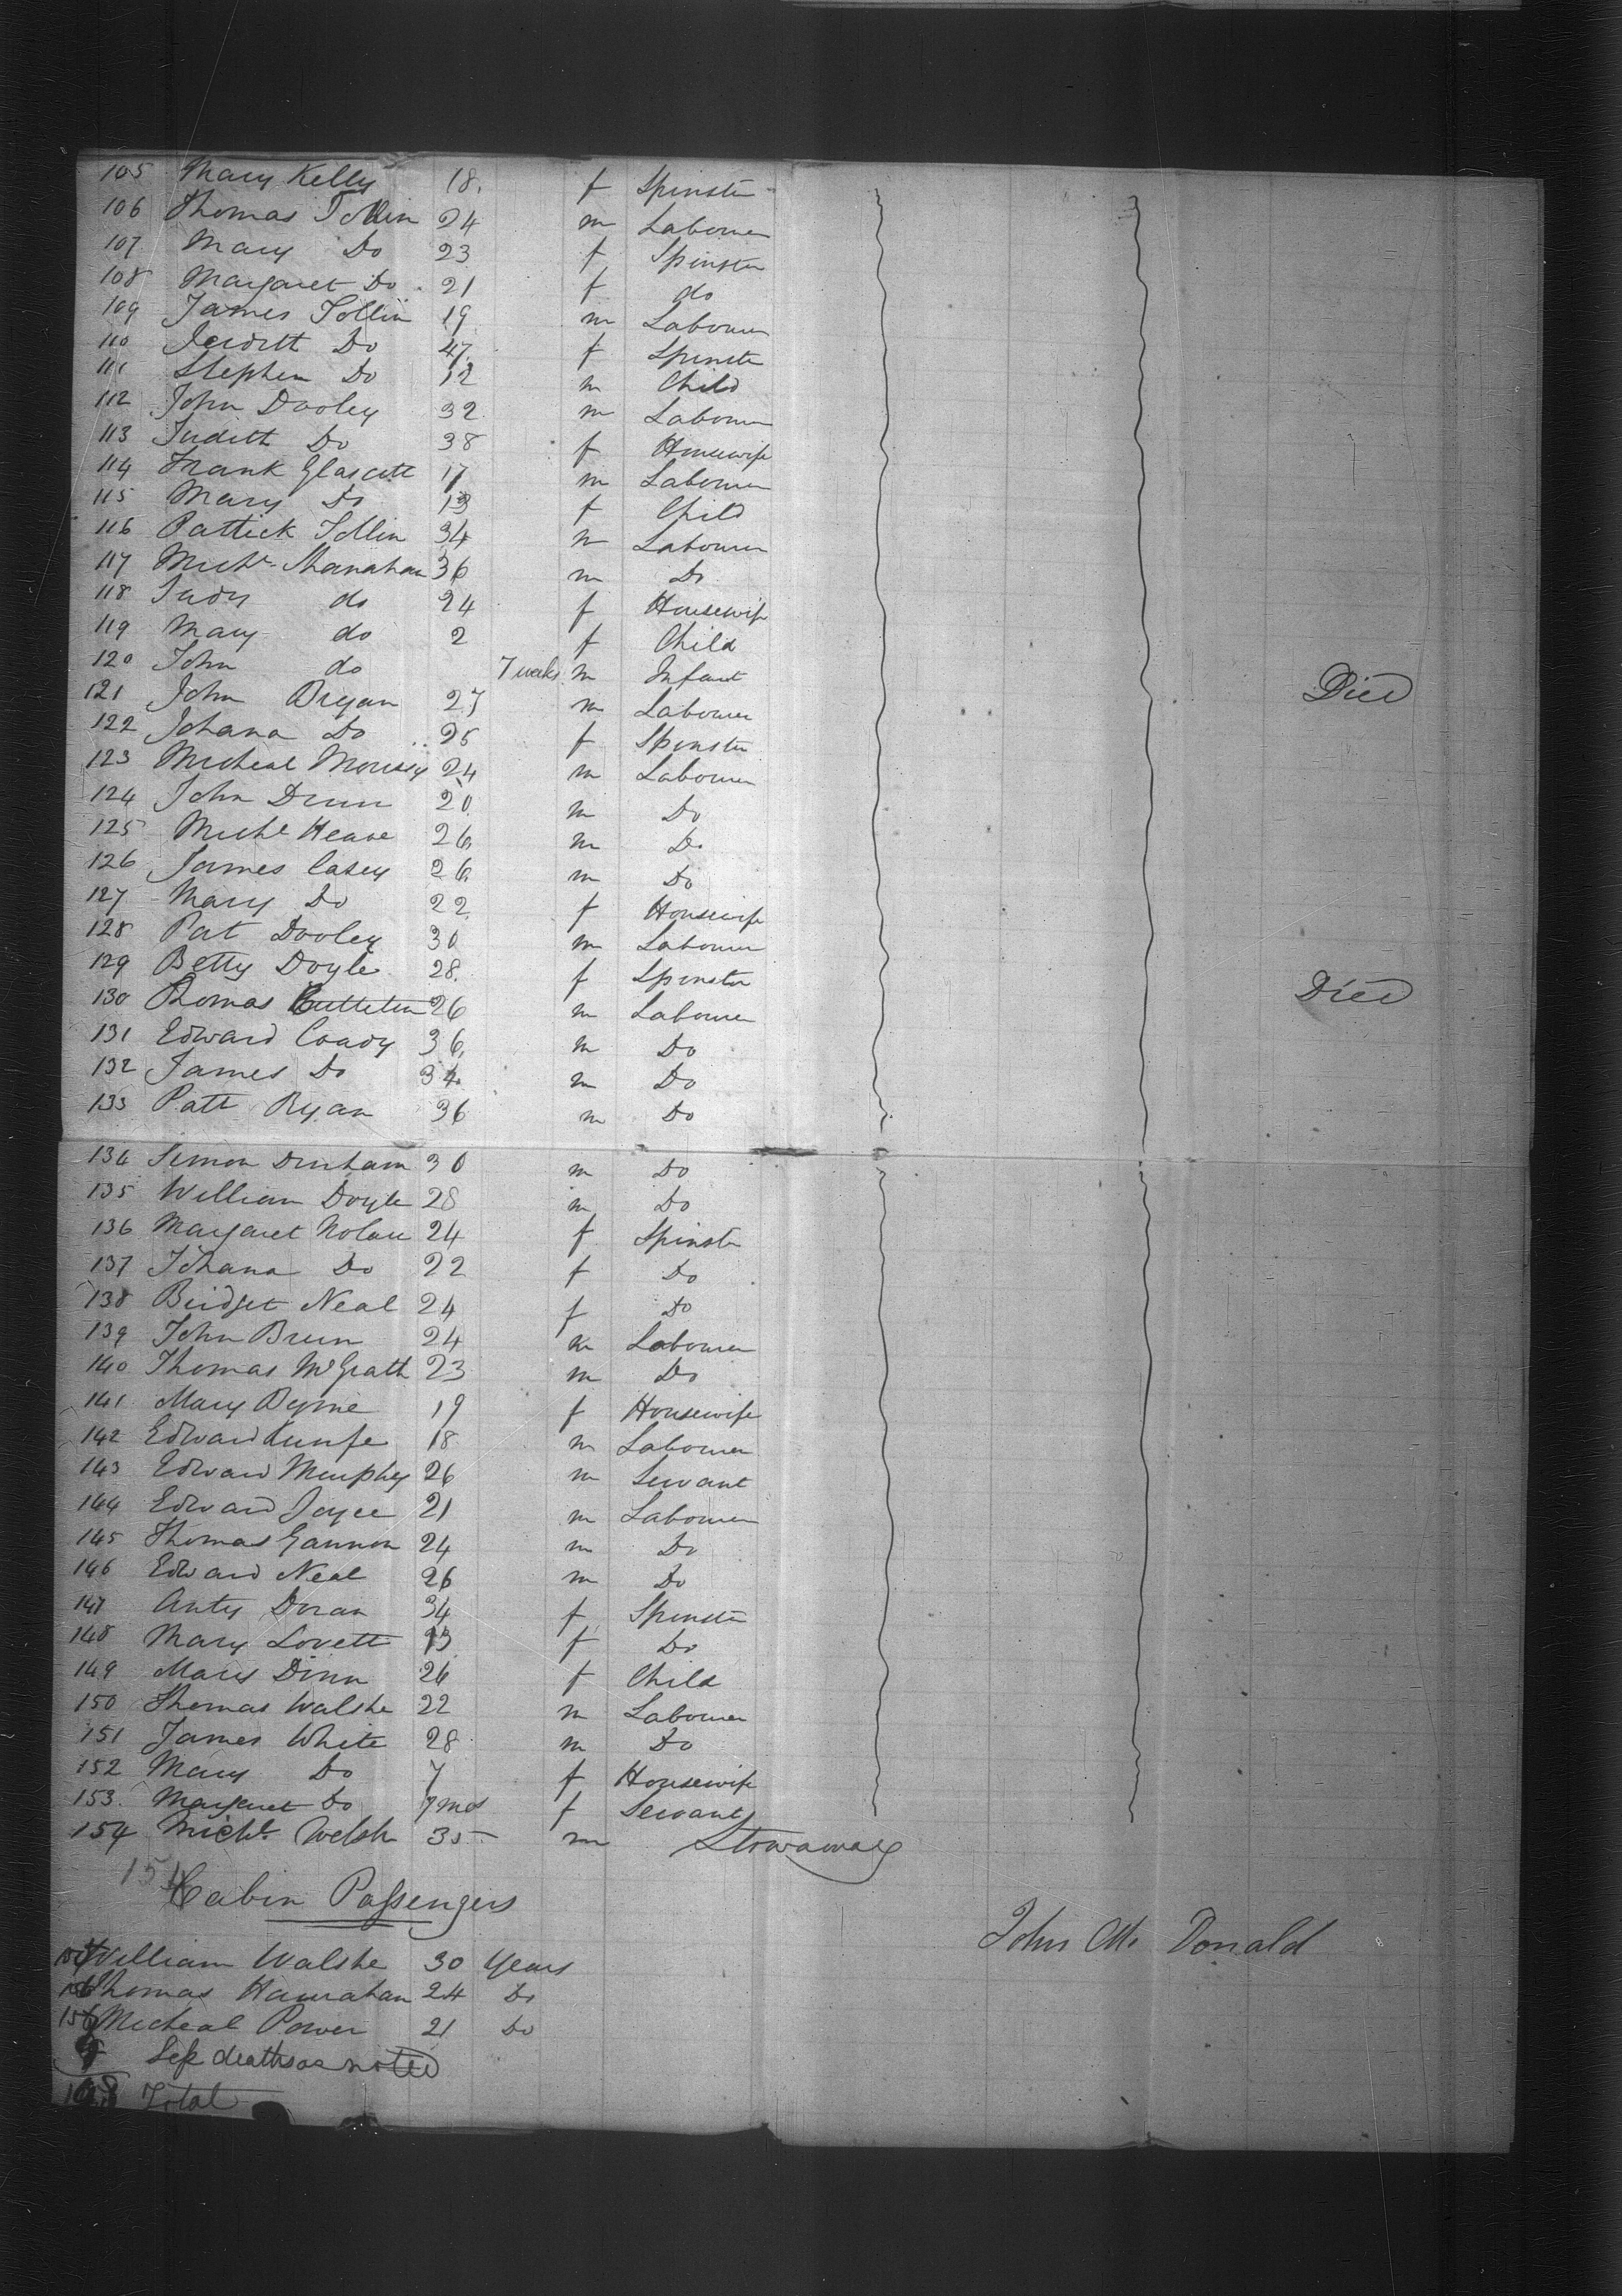 105 Mary Kelly 18. f Spinster
106 Thomas Tobin 24 m Labourer
107 Mary Do 23 f Spinster
108 Margaret Do 21 f do
109 James Tobin 19 m Labourer
110 Do 47 f Spinster
111 Stephen Do 12 m Child
112 John Dooley 32 m Labourer
113 Judith Do 38 f Housewife
114 Frank Glascott 17 m Labourer
115 Mary Do 13 f Child
116 Pattick 34 m Labourer
117 Michl Shanahan 36 m Do
118 Judy do 24 f Housewife
119 Mary do 2 f Child
120 John do 7 weeks m Infant Died
121 John Bryan 27 m Labourer
122 Johana Do 25 f Spinster
123 Micheal 24 m Labourer
124 John Dunn 20 m Do
125 Michl 26 m Do
126 James Casey 26 m Do
127 Mary Do 22 f Housewife
128 Pat Dooley 30 m Labourer
129 Betty Doyle 28. f Spinster Died
130 Thomas 26 m Labourer
131 Edward Coady 36 m Do
132 James Do 34 m Do
133 Patt Ryan 36 m Do
134 Simon 30 m Do
135 William Doyle 28 m Do
136 Margaret Nolan 24 f Spinster
137 Johana Do 22 f Do
138 Bridget Neal 24 f Do
139 John 24 m Labourer
140 Thomas McGrath 23 m Do
141 Mary Byrne 19 f Housewife
142 Edward 18 m Labourer
143 Edward Murphy 26 m Servant
144 Edward Joyce 21 m Labourer
145 Thomas Gannon 24 m Do
146 Edward Neal 26 m Do
147 Anty Doran 34 f Spinster
148 Mary Lovett 13 f Do
149 Mary Dinn 26 f Child
150 Thomas Walshe 22 m Labourer
151 James White 28 m Do
152 Mary Do 7 f Housewife
153. Margaret Do 7 mos f Servant
154 Michl Welsh 35 m Stowaway
154
Cabin Passengers
John Mc Donald
William Walshe 30 Years
Thomas Hanrahan 24 Do
Micheal Power 21 Do
Less deaths as noted
Total